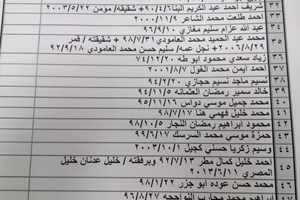 ٣٢ شريف احمد عبد الكريم البنا ٩٠/٤/١ + شقيقته/ مؤمن ٢٠٠٣/٥/٢٢
٣٣ احمد طلعت محمد الشاعر ٢٠٠٠/١١/٩
٣٤ عبد الله عزام سليم مغازي ٩٦/٩/١٠
٣٥ محمد عبد الحميد محمد العامودي ٩٨/٧/٣١ + شقيقته / قمر
٢٠٠٦/٨/٢٩ + نجل عمه/ سليم حسن محمد العامودي ٩٢/٩/١٨
٣٦ زياد سعدي محمود ابو طه ٧٤/١٢/٢٠
٣٧ احمد ايمن محمد الغول ٢٠٠١/٨/٧
٣٨ نسيم ماجد نسيم حجازي ٩٤/٢/٢٠
٣٩ خالد سمير رمضان العثامنه ٩٤/٤/٥
٤٠ محمد جميل موسي دواس ٩٥/١١/١٦
٤١ محمد خليل فهمي هنا ٩٨/٧/٧
٤٢ محمود ابراهيم رمضان النجار ٩٨/١٠/٥
٤٣ حمزة موسي محمد السرسك ٩٩/٦/١٧
٤٤ وسيم زكريا حسني كحيل ٢٠٠٣/١٠/١
٤٥ احمد خليل كمال مطر ٩٢/٧/١٣ وبرفقته / خليل عدنان خليل
المصري ٢٠١١/٦/١٣
٤٦ محمد حسن عوده ابو جزر ٩٨/١/٢٢
٤٧ ابراهيم محمد محارب النواجحه